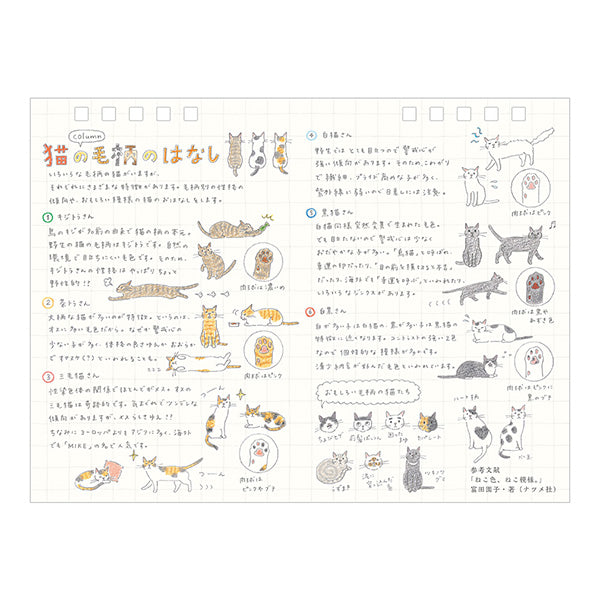 column
猫の毛柄のはなし
いろいろな毛柄の猫がいますが、
それぞれにさまざまな特徴があります。毛柄別の性格の
傾向や、おもしろい模様の猫のおはなしをします。
1 キジトラさん
鳥のキジが名前の由来で猫の柄の本元。
野生の猫の毛柄はキジトラです。自然の
環境で目立ちにくい毛色です。そのため、
キジトラさんの性格はやっぱりちょっと
野性的!!
肉球は濃いめ
2 茶トラさん
大柄な猫が多いのが特徴。というのは、
オスに多い毛色だから。なぜか警戒心の
少ない子が多く、体格の良さゆえかおおらか
でオヤブン(?)といわれることも。
肉球はピンク
3 三毛猫さん
性染色体の関係でほとんどがメス。オスの
三毛猫は奇跡的です。気まぐれでツンデレな
傾向がありますが、メスらしさゆえ!?
ちなみにヨーロッパよりもアジアに多く、海外
でも「MIKE」の名で人気です。
つーん
つーん
肉球は
ピンクやブチ
4 白猫さん
野生ではとても目立つので警戒心が
強い傾向があります。そのため、こわがり
で繊細、プライドが高めな子が多く、
紫外線に弱いので日差しには注意。
肉球はピンク
5 黒猫さん
白猫同様突然変異で生まれた毛色。
でも目立たないので警戒心は少なく
おだやかな子が多い。「烏猫」と呼ばれ、
幸運の印だったり、「目の前を横切ると不吉」
だったり。海外でも「幸運を呼ぶ」といわれたり、
いろいろなジンクスがあります。
肉球は黒や
あずき色
6 白黒さん
白が多い子は白猫の、黒が多い子は黒猫の
特徴に近くなります。コントラストの強い2色
なので個性的な模様が多めです。
肉球はピンクに
黒のブチ
おもしろい毛柄の猫たち
ハート柄
ちょびヒゲ
困った
まゆ
うずまき
参考文献
「ねこ色、ねこ模様。」
富田園子・著(ナツメ社)